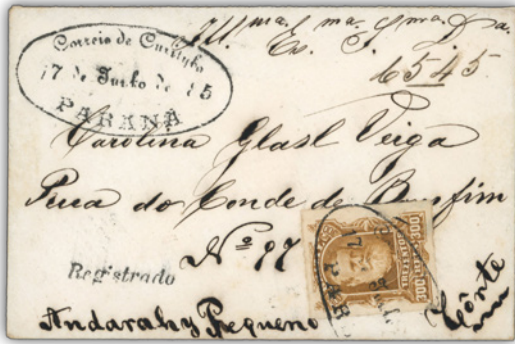 Correio de Curityba
17 de Junho de 85
PARANÁ
Illma. Exma. Snra. Da.
6545
Carolina Glasl Veiga
Rua do Conde de Bomfim
Nº 87
TREZENTOS
300
300
Registrado
Andarahy Pequeno
Côrte